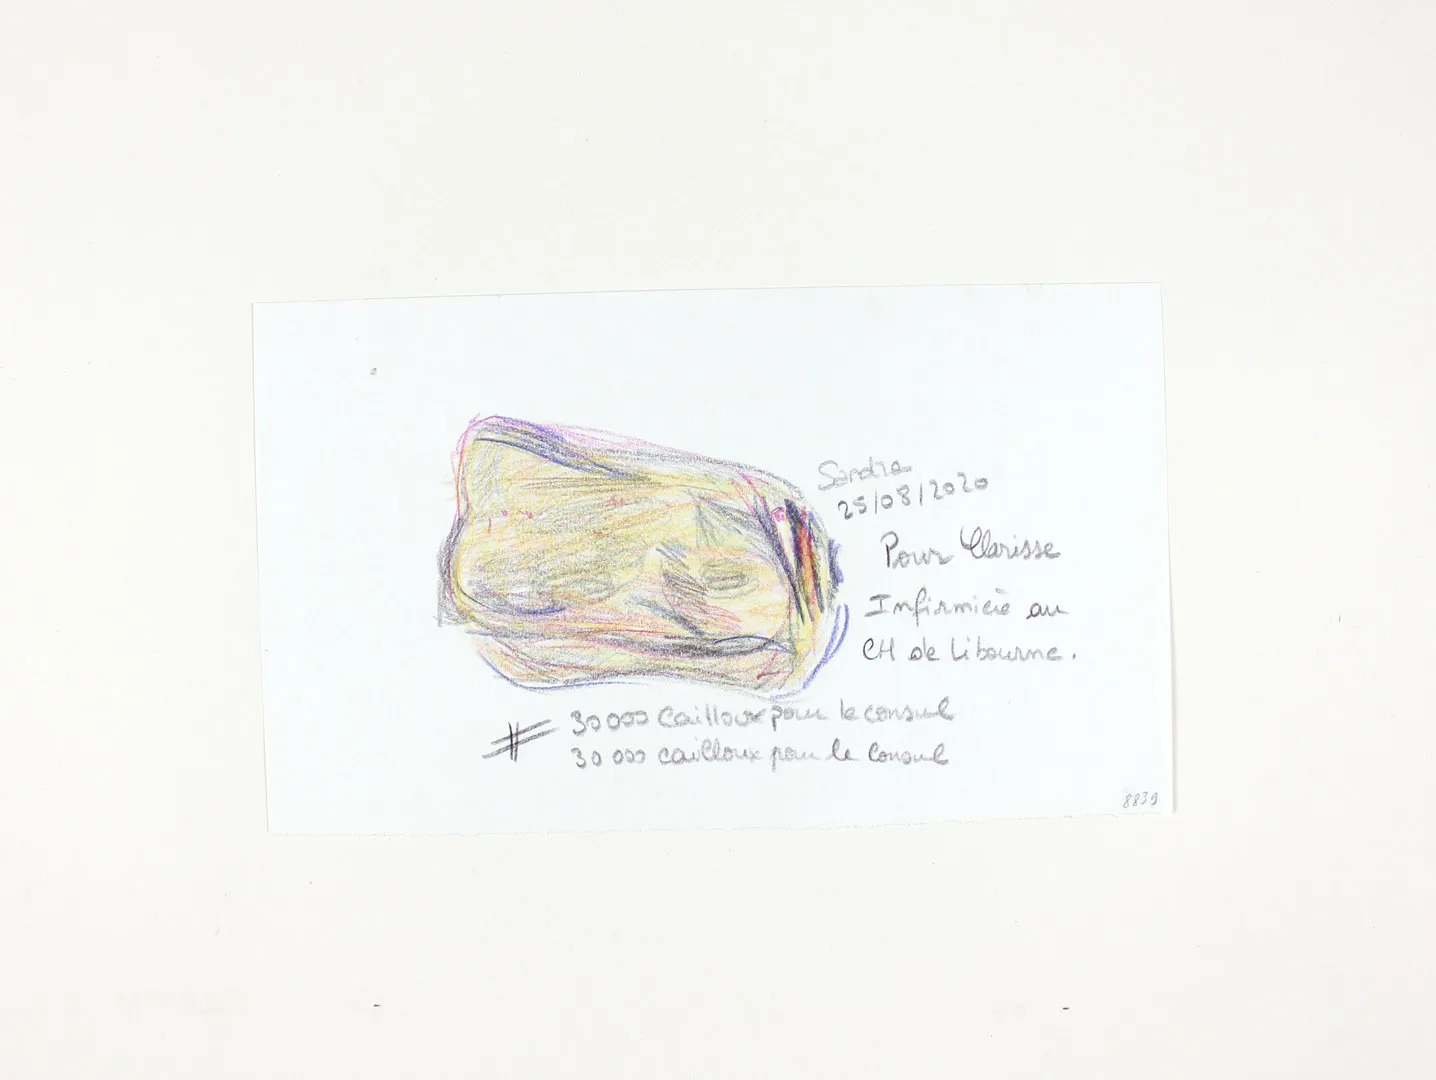 Sandra
25/08/2020
Pour Clarisse
Infirmière au
CH de Libourne.
# 30000 cailloux pour le consul
30 000 cailloux pour le Consul
8839